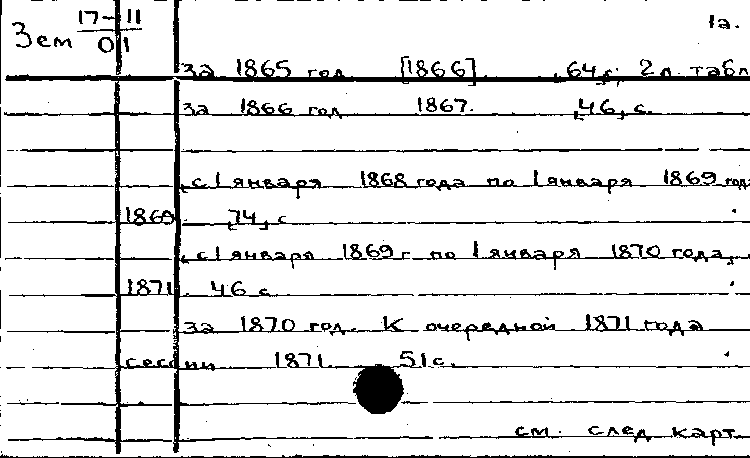 Зем 17-11 1а.
01
за 1865 год [1866] 64 с; 2 л. табл
за 1866 год 1867. 46, с.
с 1 января 1868 года по 1 января 1869 год
1869. 74, с
с 1 января 1869 г по 1 января 1870 года,
1871. 46 с
за 1870 год. К очередной 1871 года
сессии 1871. 51 с.
см. след карт